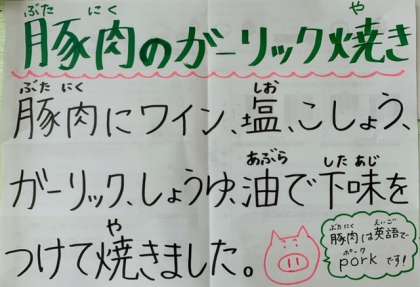 ぶた にく や
豚肉のガーリック焼き
ぶた にく しお
豚肉にワイン、塩、こしょう、
あぶら した あじ
ガーリック、しょうゆ、油で下味を
や
つけて焼きました。
ぶた にく えいご
豚肉は英語で
ポーク
porkです!